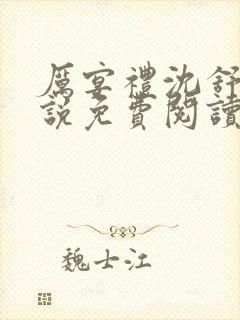 厲宴禮沈舒
說免費閱讀
魏士江